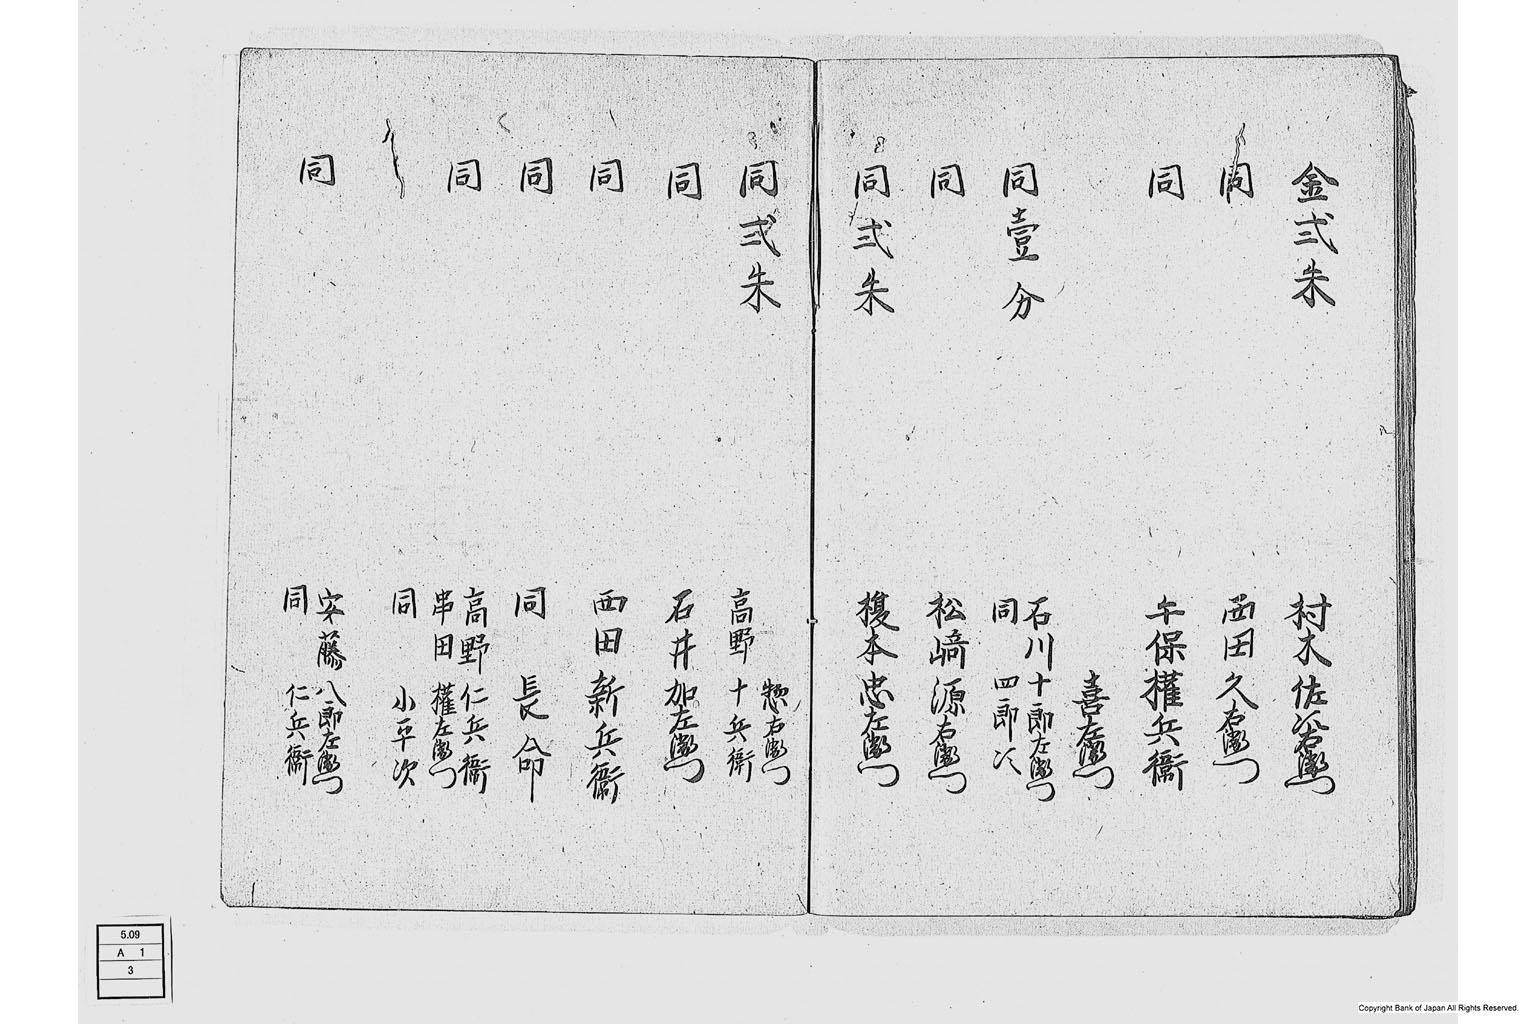 金弐朱 村木佐次右衛門
同 西田久右衛門
同 午保権兵衛
喜左衛門
同壹分 石川十郎左衛門
同 四郎次
同 松﨑源右衛門
同弐朱 榎本忠左衛門
惣右衛門
同弐朱 高野十兵衛
同 石井加左衛門
同 西田新兵衛
同 同 長命
同 高野仁兵衛
串田権左衛門
同 小平次
同 安藤八郎左衛門
同 仁兵衛
5.09
A 1
3
Copyright Bank of Japan All Rights Reserved.